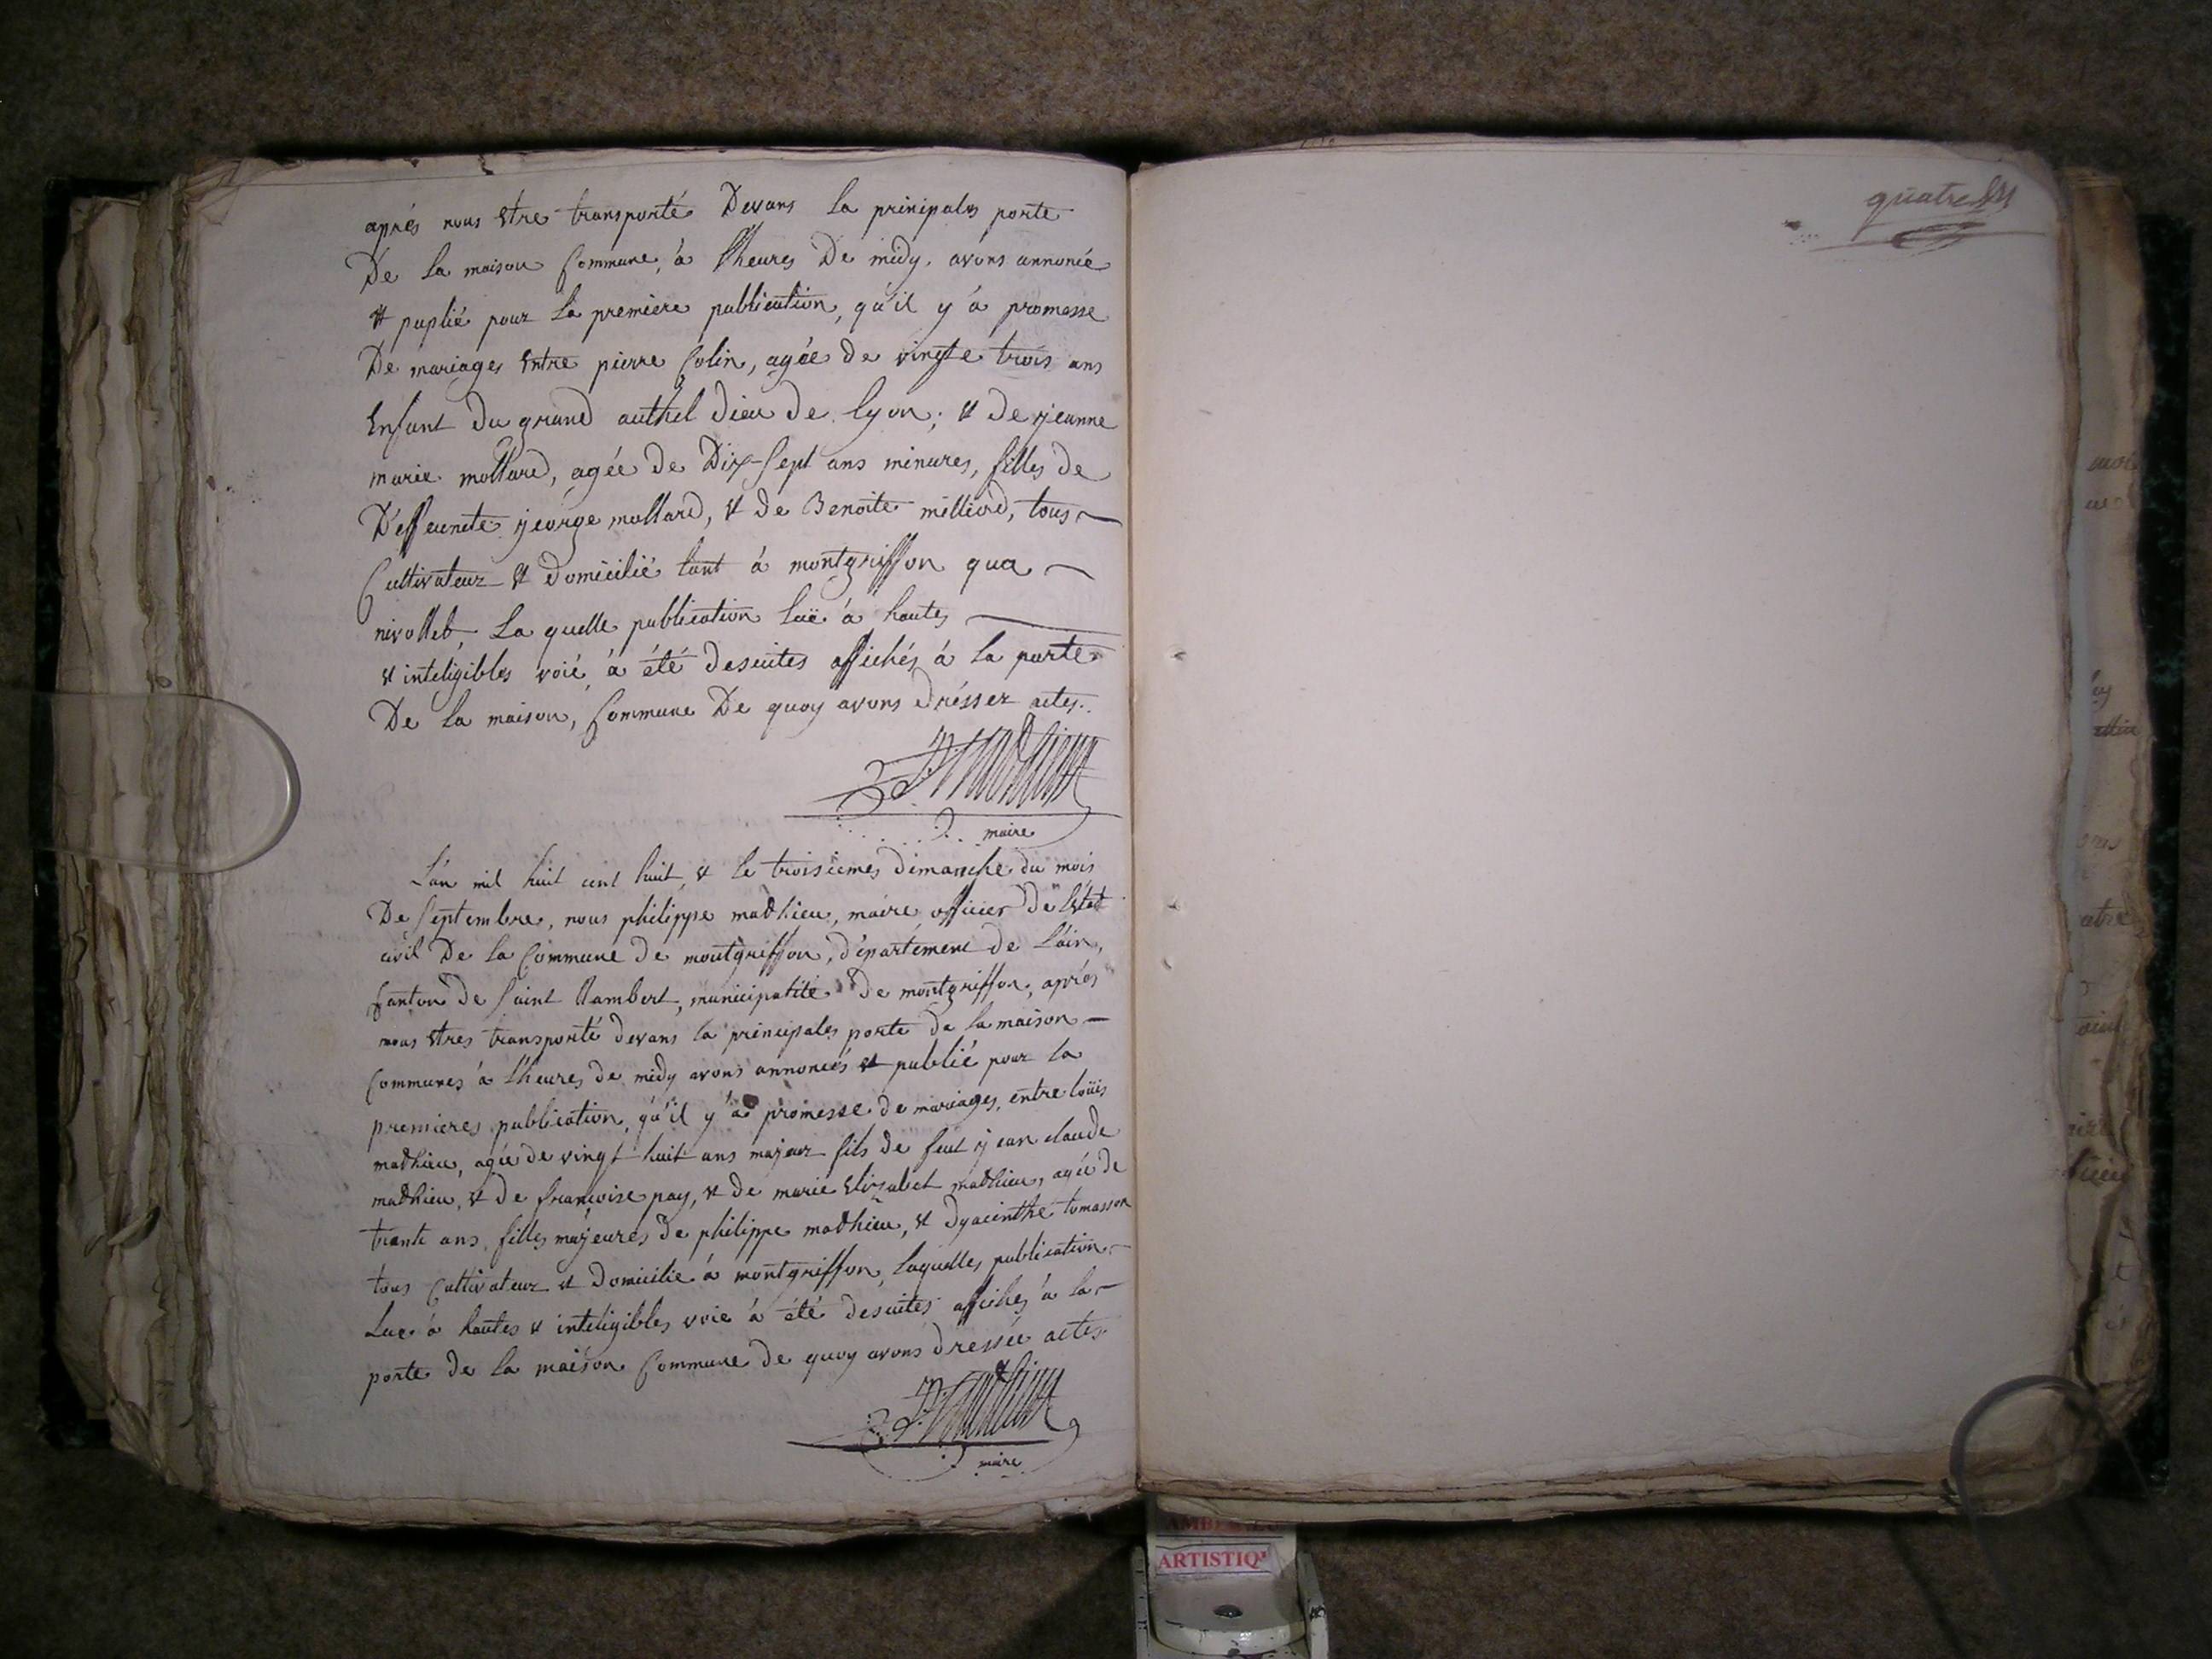 après nous etre transporté Devans la principales porte
De la maison Commune, à l'heures De midy, avons annoncé
et puplié pour la premiere publication, qu'il y à promesse
De mariages Entre pierre Colin, agée de vingte trois ans
Enfant Du grand authel dieu de lyon; et de jeanne
marie mollard, agée de Dix-Sept ans minures, filles de
george mollard, et de Benoite milliord, tous
Cultivateur et Domicilié tant à montgriffon qua
nivollet, La quelle publication luë à hautes
et inteligibles voié, à été desuites affichés à la porte
De la maison, Commune De quoy avons drésser actes.
P. Mathieu
maire
L'an mil huit cent huit, et le troisiemes dimanche du mois
De Septembre, nous philippe mathieu, maire officier de l'état
civil De la Commune de montgriffon, département de L'ain,
Canton de Saint Rambert, municipalité de montgriffon, après
nous etres transporté devans la principales porte de la maison
Communes à l'heures de midy avons annoncés et publié pour la
premieres publication, qu'il y à promesse de mariages, entre loüis
mathieu, agée de vingt huit ans majeur fils de feut jean claude
mathieu, et de françoise pay, et de marie Elizabet mathieu, agée de
trante ans, filles majeures de philippe mathieu, et dyacinthe tomasson
tous Cultivateur et Domicilié à montgriffon, laquelles publication
Lue à hautes et inteligibles voie à été desuites affiches à la
porte de la maison Commune de quoy avons dressée actes.
P. Mathieu
maire
quatre
ARTISTIQ